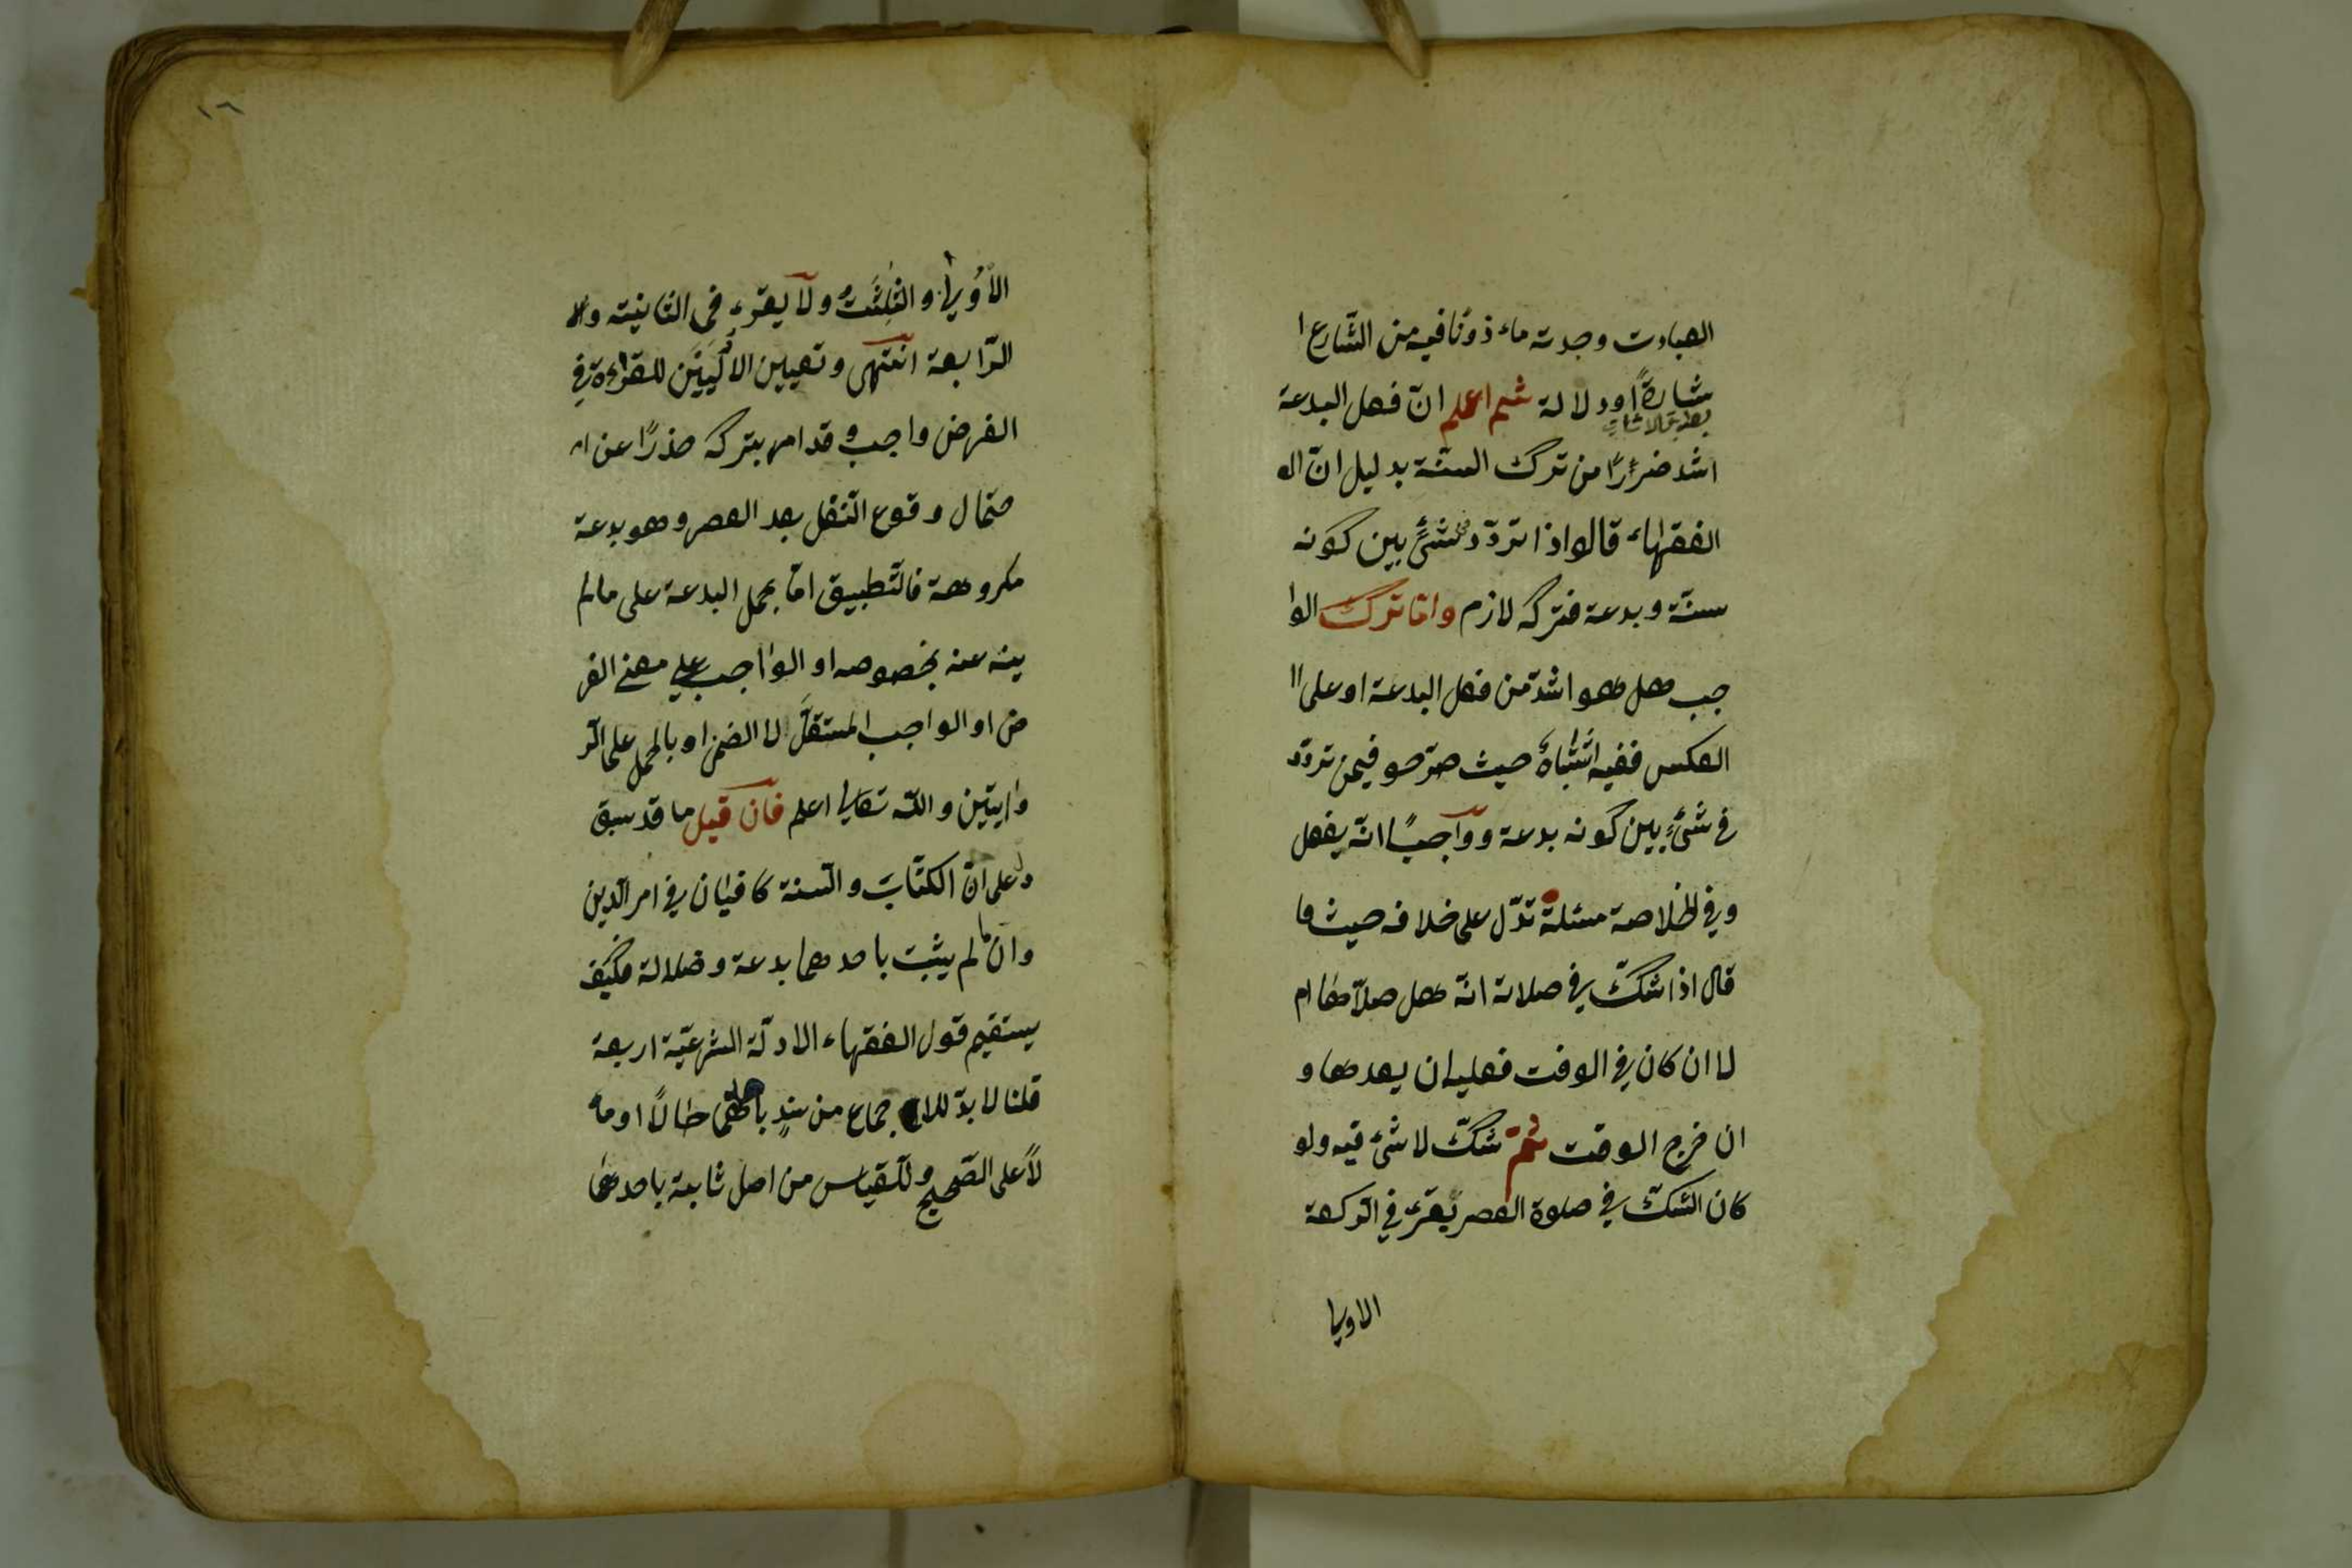 العبادت وجدته ماءذونا فيه من الشّارع ا
شارةً اودلالة ثم اعلم انّ فعل البدعة
اشد ضررًا من ترك السنّة بدليل انّ الـ
الفقهاء قالوا اذا تردّد شئ بين كونه
سنّة وبدعة فتركه لازم وامّا ترك الوا
جب هل هو اشدّ من فعل البدعة او على ا
العكس ففيه اشتباهٌ حيث صرّحو فيمن تردّد
فى شئٍ بين كونه بدعة وواجبًا انّه يفعل
وفى الخلاصة مسئلة تدّل على خلافه حيث ما
قال اذا شكّ فى صلاته انّه هل صلّاها ام
لا ان كان فى الوقت فعليه ان يعدها و
ان خرج الوقت ثمّ شكّ لا شئ فيه ولو
كان الشكّ فى صلوة العصر يقرئ فى الرّكعة
الاولى
١٦
الأولى والثلثت ولا يقرء فى الثانيته ولا
الرّابعة انتهى وتعيين الاوليين للقراءة فى
الفرض واجب وقد امر بتركه حذرًا عن ا
حتمال وقوع النّفل بعد العصر وهو بدعة
مكروهة فالتّطبيق امّا بحمل البدعة على مالم
ينه عنه بخصوصه او الواجب على معنى الفر
ض او الواجب المستقلّ لا الضمن او بالحمل على الرّ
وايتين واللّه تعالى اعلم فان قيل ما قد سبق
دل على انّ الكتاب والسّنة كافيان فى امر الدّين
وان ما لم يثبت باحدهما بدعة وضلالة فكيف
يستقيم قول الفقهاء الادلّة الشرعيّة اربعة
قلنا لا بدّ للاجماع من سندٍ باحدهما حالًا او مأ
لًا على الصّحيح وللقياس من اصل ثابتة باحدهما